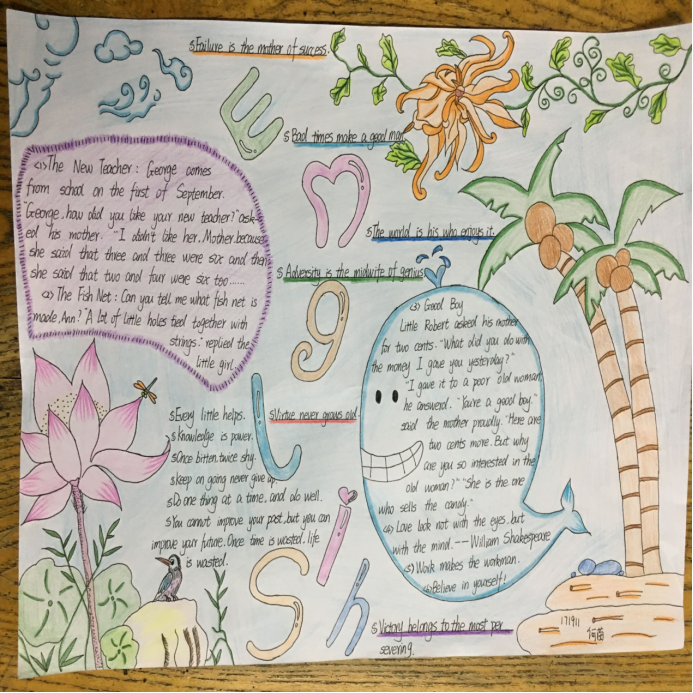 s Failure is the mother of success.
E
s Bad times make a good man.
n
s The world is his who enjoys it.
s Adversity is the midwife of genius
g
<1> The New Teacher: George comes
from school on the first of September.
"George, how did you like your new teacher?" ask-
ed his mother. "I didn't like her, Mother, because
she said that three and three were six and then
she said that two and four were six too......
<2> The Fish Net: Can you tell me what fish net is
made, Ann? "A lot of little holes tied together with
strings." replied the
little girl.
<3> Good Boy
Little Robert asked his mother
for two cents. "What did you do with
the money I gave you yesterday?"
"I gave it to a poor old woman,"
he answerd. "You're a good boy."
said the mother proudly. "Here are
two cents more. But why
are you so interested in the
old woman?" "She is the one
who sells the candy."
<4> Love look not with the eyes, but
with the mind. --- William Shakespeare
<5> Work makes the workman.
<6> Believe in yourself!
l
s Virtue never grows old.
s Every little helps.
s Knowledge is power.
s Once bitten, twice shy.
s Keep on going never give up.
s Do one thing at a time, and do well.
s You cannot improve your past, but you can
improve your future. Once time is wasted, life
is wasted.
i
s
h
s Victory belongs to the most per
severing.
171911